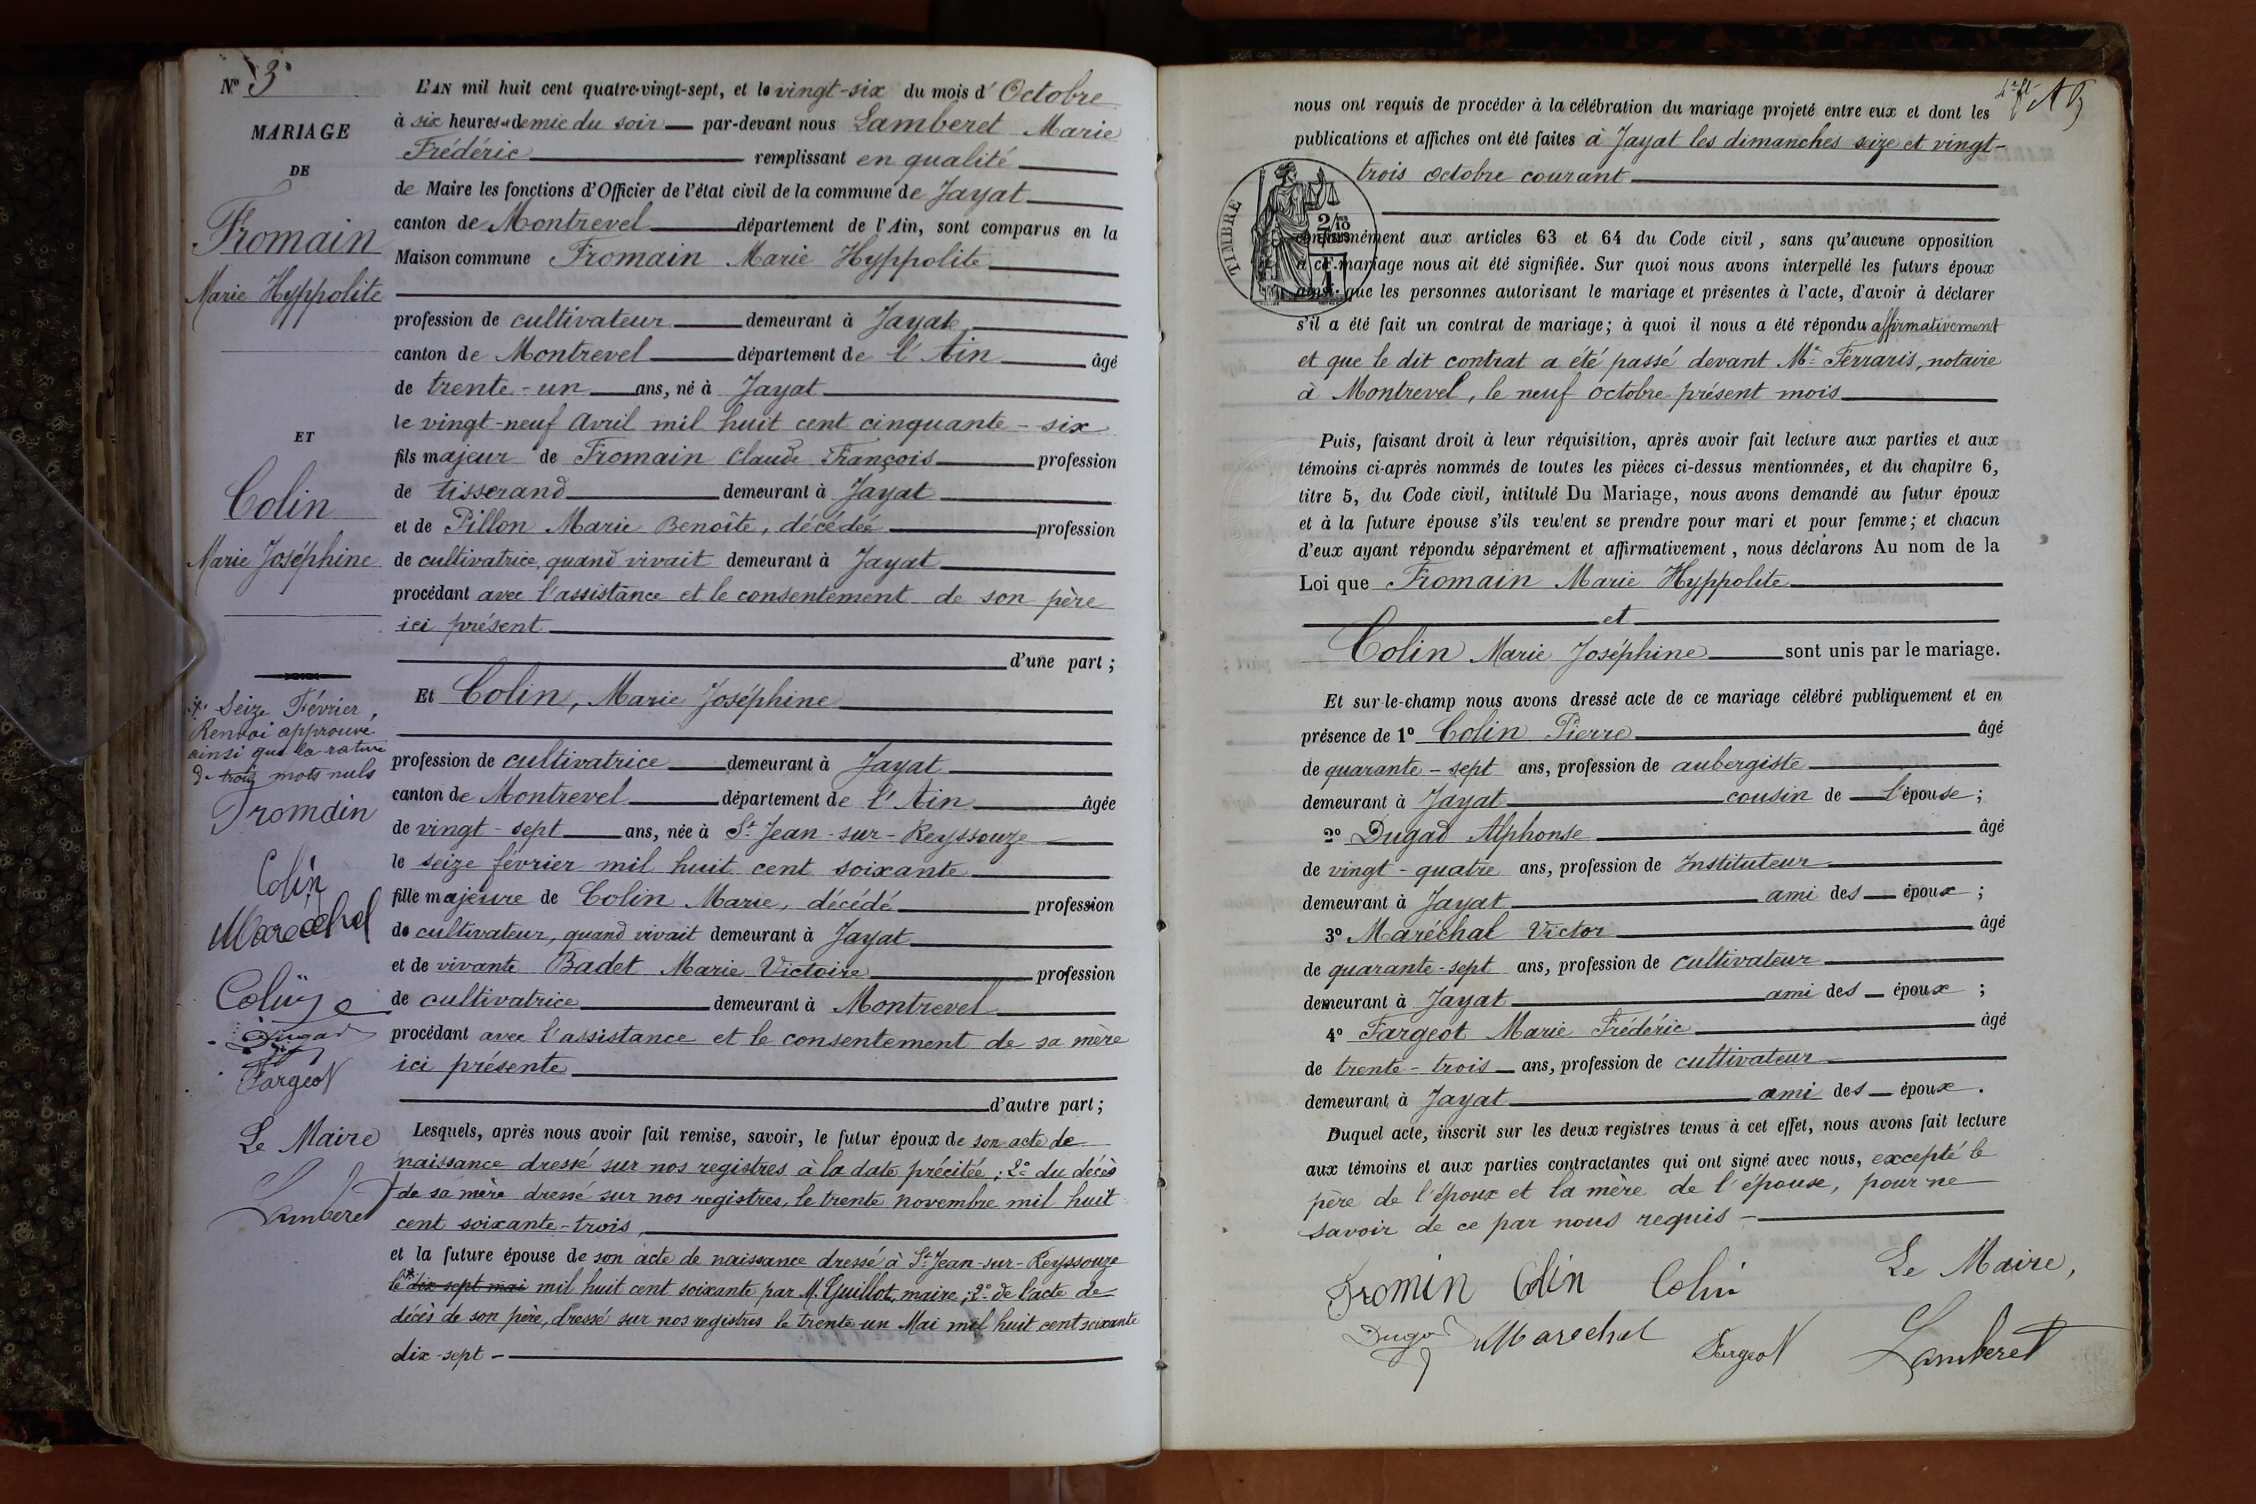 Nº 3
MARIAGE
DE
Fromain
Marie Hyppolite
ET
Colin
Marie Joséphine
* Seize Février,
Renvoi approuvé
ainsi que la rature
de trois mots nuls
Fromain
Colin
Maréchal
Colin
Dugad
Fargeot
Le Maire
Lamberet
L'AN mil huit cent quatre-vingt-sept, et le vingt-six du mois d'Octobre
à six heures et demie du soir par-devant nous Lamberet Marie
Frédéric remplissant en qualité
de Maire les fonctions d'Officier de l'état civil de la commune de Jayat
canton de Montrevel département de l'Ain, sont comparus en la
Maison commune Fromain Marie Hyppolite
profession de cultivateur demeurant à Jayat
canton de Montrevel département de l'Ain âgé
de trente-un ans, né à Jayat
le vingt-neuf Avril mil huit cent cinquante-six
fils majeur de Fromain Claude François profession
de tisserand demeurant à Jayat
et de Pillon Marie Benoîte, décédée profession
de cultivatrice, quand vivait demeurant à Jayat
procédant avec l'assistance et le consentement de son père
ici présent
d'une part;
Et Colin, Marie Joséphine
profession de cultivatrice demeurant à Jayat
canton de Montrevel département de l'Ain âgée
de vingt-sept ans, née à St Jean-sur-Reyssouze
le seize février mil huit cent soixante
fille majeure de Colin Marie, décédé profession
de cultivateur, quand vivait demeurant à Jayat
et de vivante Badet Marie Victoire profession
de cultivatrice demeurant à Montrevel
procédant avec l'assistance et le consentement de sa mère
ici présente
d'autre part;
Lesquels, après nous avoir fait remise, savoir, le futur époux de son acte de
naissance dressé sur nos registres à la date précitée; 2º du décès
de sa mère dressé sur nos registres, le trente novembre mil huit
cent soixante-trois,
et la future épouse de son acte de naissance dressé à St Jean-sur-Reyssouze
le * dix-sept mai mil huit cent soixante par M. Guillot, maire; 2º de l'acte de
décès de son père, dressé sur nos registres le trente-un Mai mil huit cent soixante
dix-sept
nous ont requis de procéder à la célébration du mariage projeté entre eux et dont les
publications et affiches ont été faites à Jayat les dimanches seize et vingt-
trois octobre courant
TIMBRE
conformément aux articles 63 et 64 du Code civil, sans qu'aucune opposition
à ce mariage nous ait été signifiée. Sur quoi nous avons interpellé les futurs époux
ainsi que les personnes autorisant le mariage et présentes à l'acte, d'avoir à déclarer
s'il a été fait un contrat de mariage; à quoi il nous a été répondu affirmativement
et que le dit contrat a été passé devant Me Ferraris, notaire
à Montrevel, le neuf octobre présent mois
Puis, faisant droit à leur réquisition, après avoir fait lecture aux parties et aux
témoins ci-après nommés de toutes les pièces ci-dessus mentionnées, et du chapitre 6,
titre 5, du Code civil, intitulé Du Mariage, nous avons demandé au futur époux
et à la future épouse s'ils veulent se prendre pour mari et pour femme; et chacun
d'eux ayant répondu séparément et affirmativement, nous déclarons Au nom de la
Loi que Fromain Marie Hyppolite
et
Colin Marie Joséphine sont unis par le mariage.
Et sur-le-champ nous avons dressé acte de ce mariage célébré publiquement et en
présence de 1º Colin Pierre âgé
de quarante-sept ans, profession de aubergiste
demeurant à Jayat cousin de l'épouse;
2º Dugad Alphonse âgé
de vingt-quatre ans, profession de Instituteur
demeurant à Jayat ami des époux;
3º Maréchal Victor âgé
de quarante-sept ans, profession de cultivateur
demeurant à Jayat ami des époux;
4º Fargeot Marie Frédéric âgé
de trente-trois ans, profession de cultivateur
demeurant à Jayat ami des époux.
Duquel acte, inscrit sur les deux registres tenus à cet effet, nous avons fait lecture
aux témoins et aux parties contractantes qui ont signé avec nous, excepté le
père de l'époux et la mère de l'épouse, pour ne
savoir de ce par nous requis
Fromin Colin Colin Le Maire,
Dugad Marechal Fargeot Lamberet